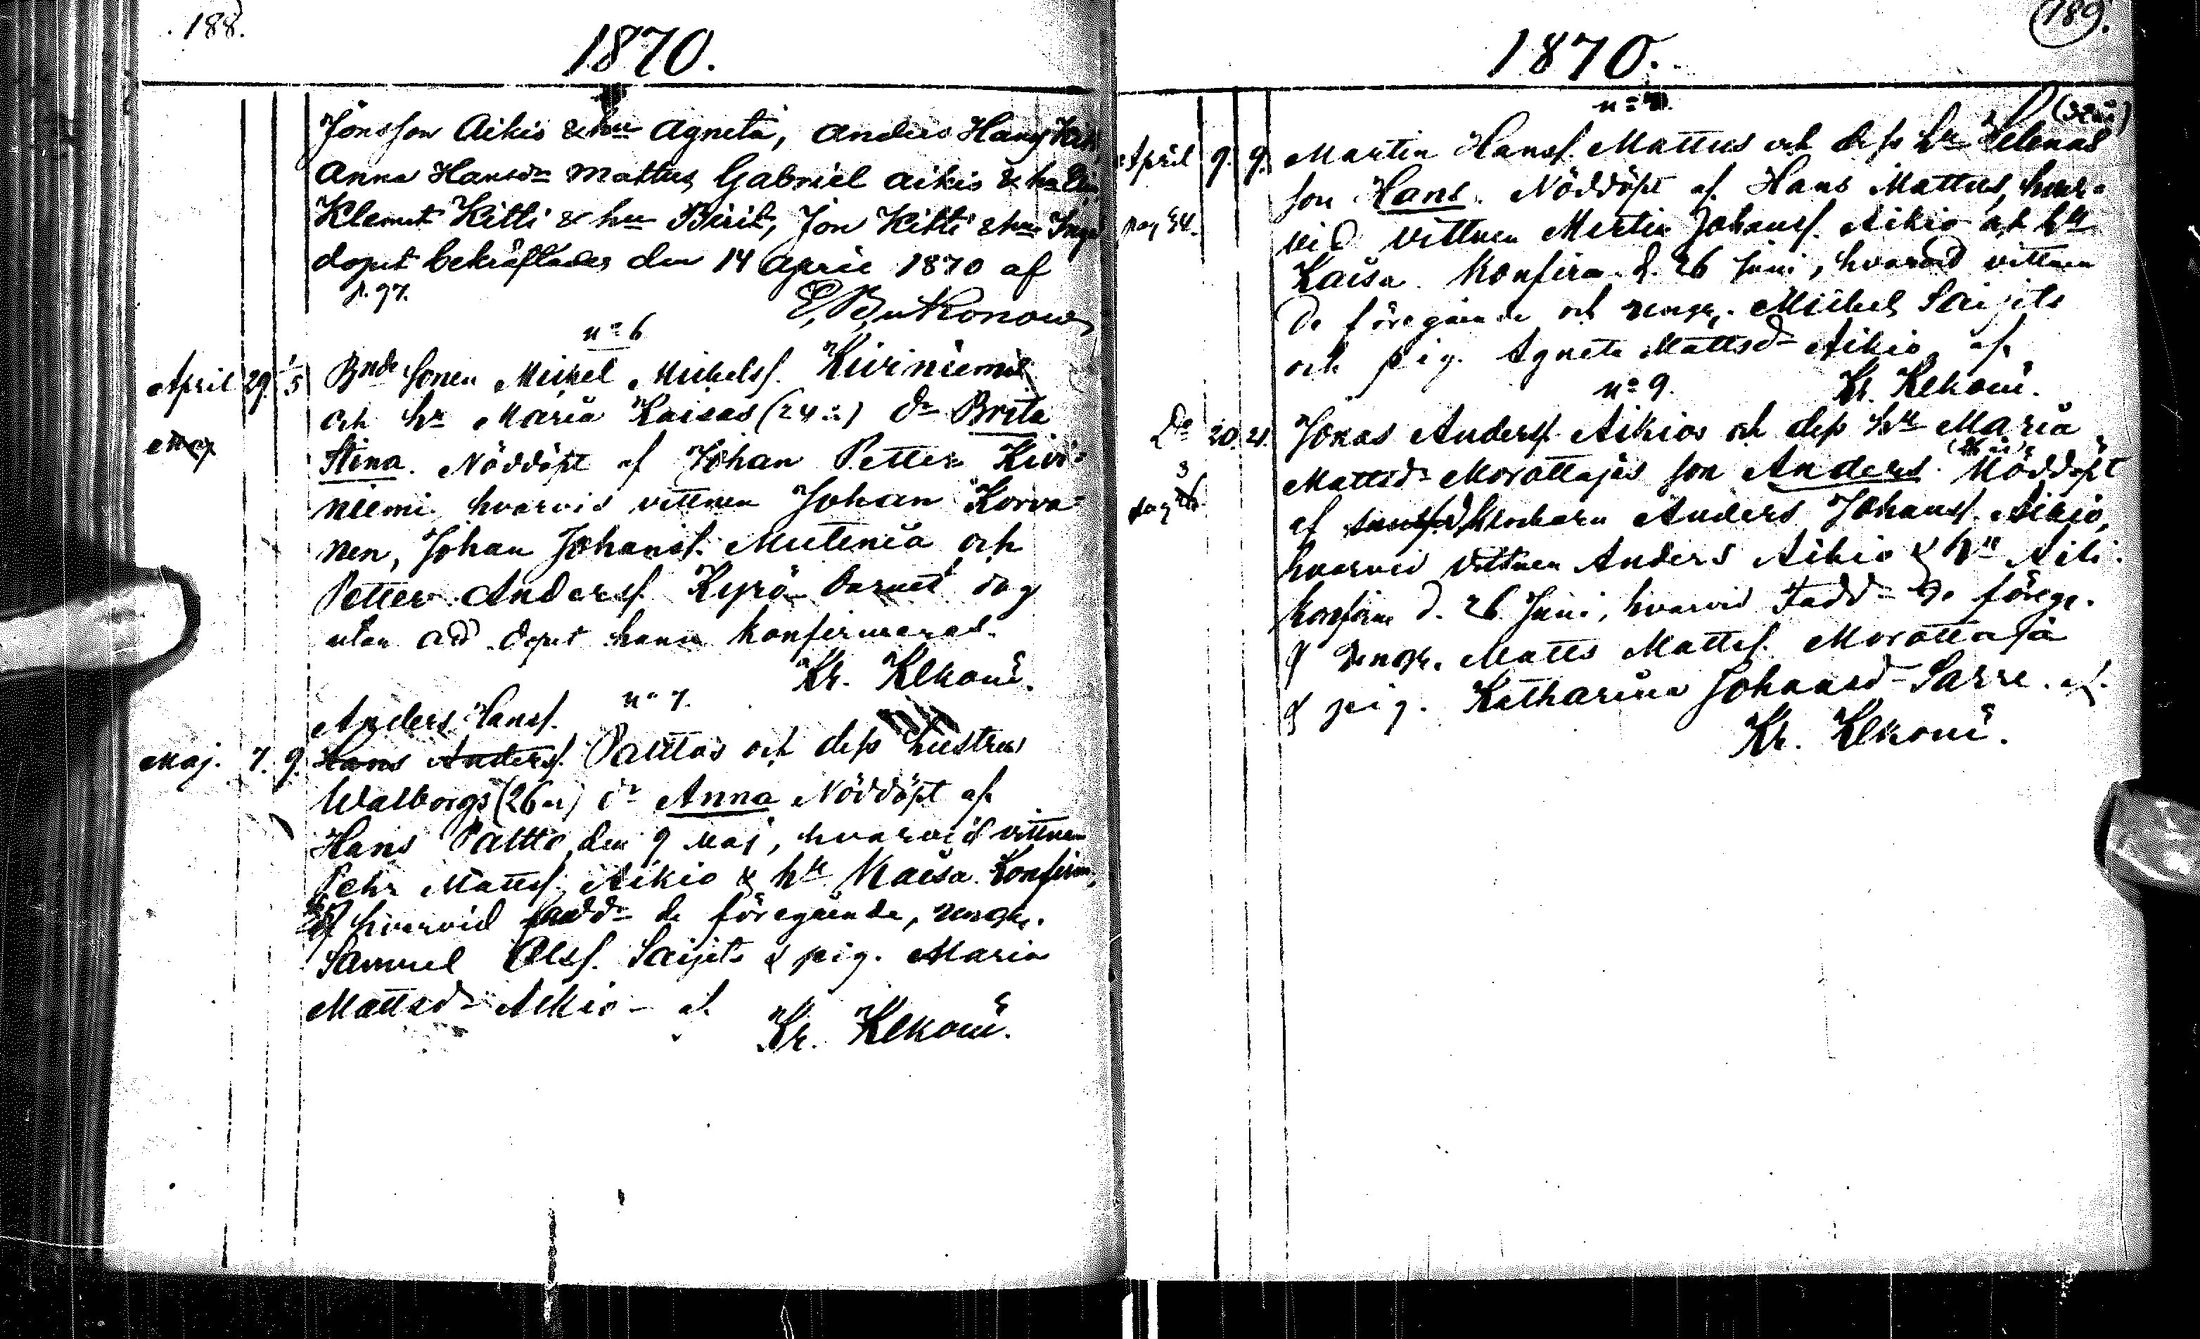 188.
1870.
Jönsson Aikio & hu Agneta, Anders Hans
Anna Hansdr Mattus Gabriel Aikio & hu
Klemet Kitti & hu Birit, Jon Kitti & hu Inga
dopet bekräftades den 14 April 1870 af
p. 97.
no 6
April 29. 1/5 Bnde Sonen Mickel Mickelss. Kiviniemis
och hr Maria Kaisas (24 år) dr Brita
Stina. Nöddöpt af Johan Petter Kivi-
niemi hvarvid vittnen Johan Korva-
nen, Johan Johanss. Mutenia och
Petter Anderss. Kyrö barnet dog
utan att dopet hann konfirmeras.
Kr. Elkoni.
no 7.
Anders Hanss.
Maj. 7. 9. Hans Anderss. Palttos och dess hustrus
Walborgs (26 år) dr Anna Nöddöpt af
Hans Paltto den 9 Maj, hvarvid vittnen
Pehr Mattss. Aikio & hu Kaisa. Konfirm.
hvarvid fadd. de föregående, drengn.
Samuel Olss. Saijets & pig. Maria
Mattsdr Aikio - af
Kr. Elkoni.
189.
1870.
April 9. 9. Martin Hanss. Mattus och dess hu Helenas
son Hans. Nöddöpt af Hans Mattus, hvar-
vid vittnen Martin Johanss. Aikio och hu
pag 34.
Kaisa. Konfirm. d. 26 Juni, hvarvid vittnen
de föregående och drengn. Mickel Saijets
och pig. Agneta Mattsd Aikio af
Kr. Elkoni.
no 9.
Do 20. 21. Jonas Anderss. Aikios och dess hu Maria
Mattsdr Morottajas son Anders. Nöddöpt
af Klockaren Anders Johanss. Aikio,
hvarvid vittnen Anders Aikio & hu
Konfirm d. 26 Juni, hvarvid Fadd. de föreg.
& drengn. Matts Mattss. Morottaja
& pig. Katharina Johansd Sarre. af.
Kr. Elkoni.